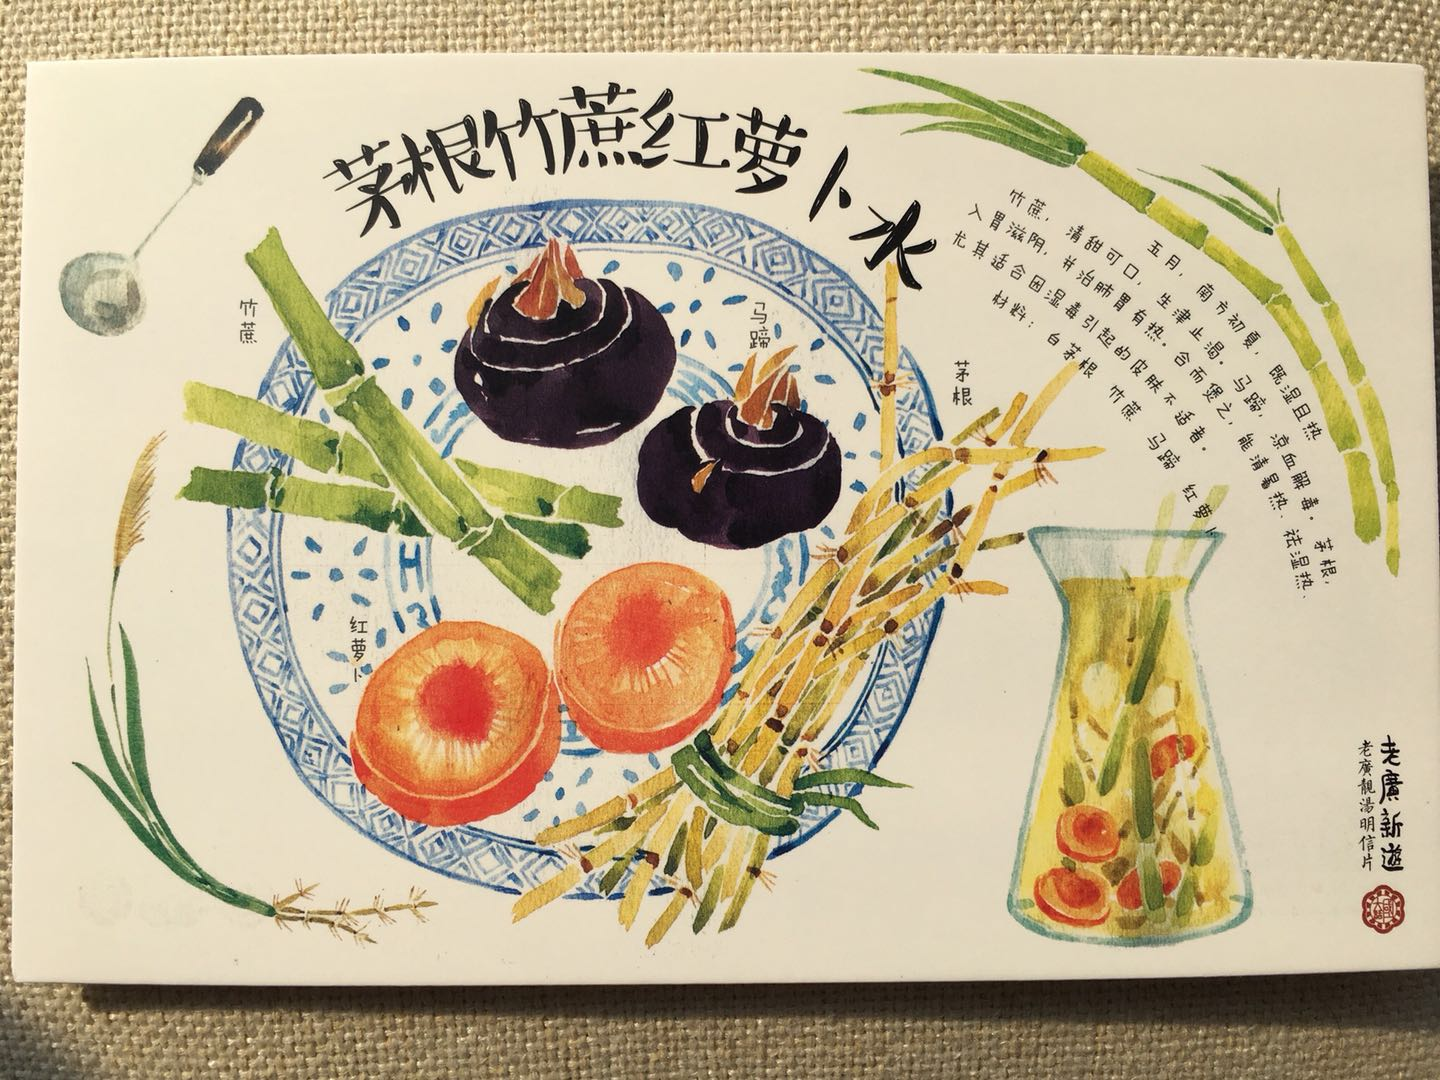 茅根竹蔗红萝卜水
五月，南方初夏，既湿且热
竹蔗，清甜可口，生津止渴。马蹄，凉血解毒。茅根，
入胃滋阴，并治肺胃有热。合而煲之，能清暑热、祛湿热、
尤其适合因湿毒引起的皮肤不适者。
材料：白茅根 竹蔗 马蹄 红萝卜
竹蔗
马蹄
茅根
红萝卜
老廣新遊
老廣靚湯明信片